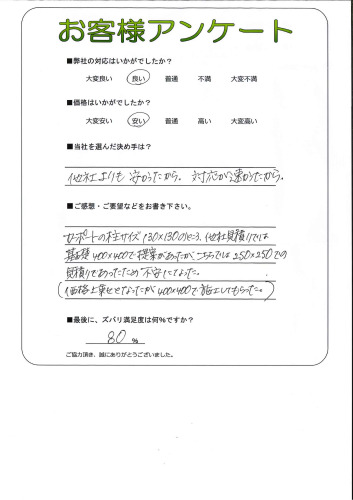 お客様アンケート
■弊社の対応はいかがでしたか?
大変良い 良い 普通 不満 大変不満
■価格はいかがでしたか?
大変安い 安い 普通 高い 大変高い
■当社を選んだ決め手は?
他社よりも安かったから。対応が速かったから。
■ご感想・ご要望などをお書き下さい。
カーポートの柱サイズ130×130のところ、他社見積りでは
基礎400×400で提案があったが、こちらでは250×250での
見積りであったため不安になった。
(価格上乗せとなったが400×400で施工してもらった。)
■最後に、ズバリ満足度は何%ですか?
80 %
ご協力頂き、誠にありがとうございました。